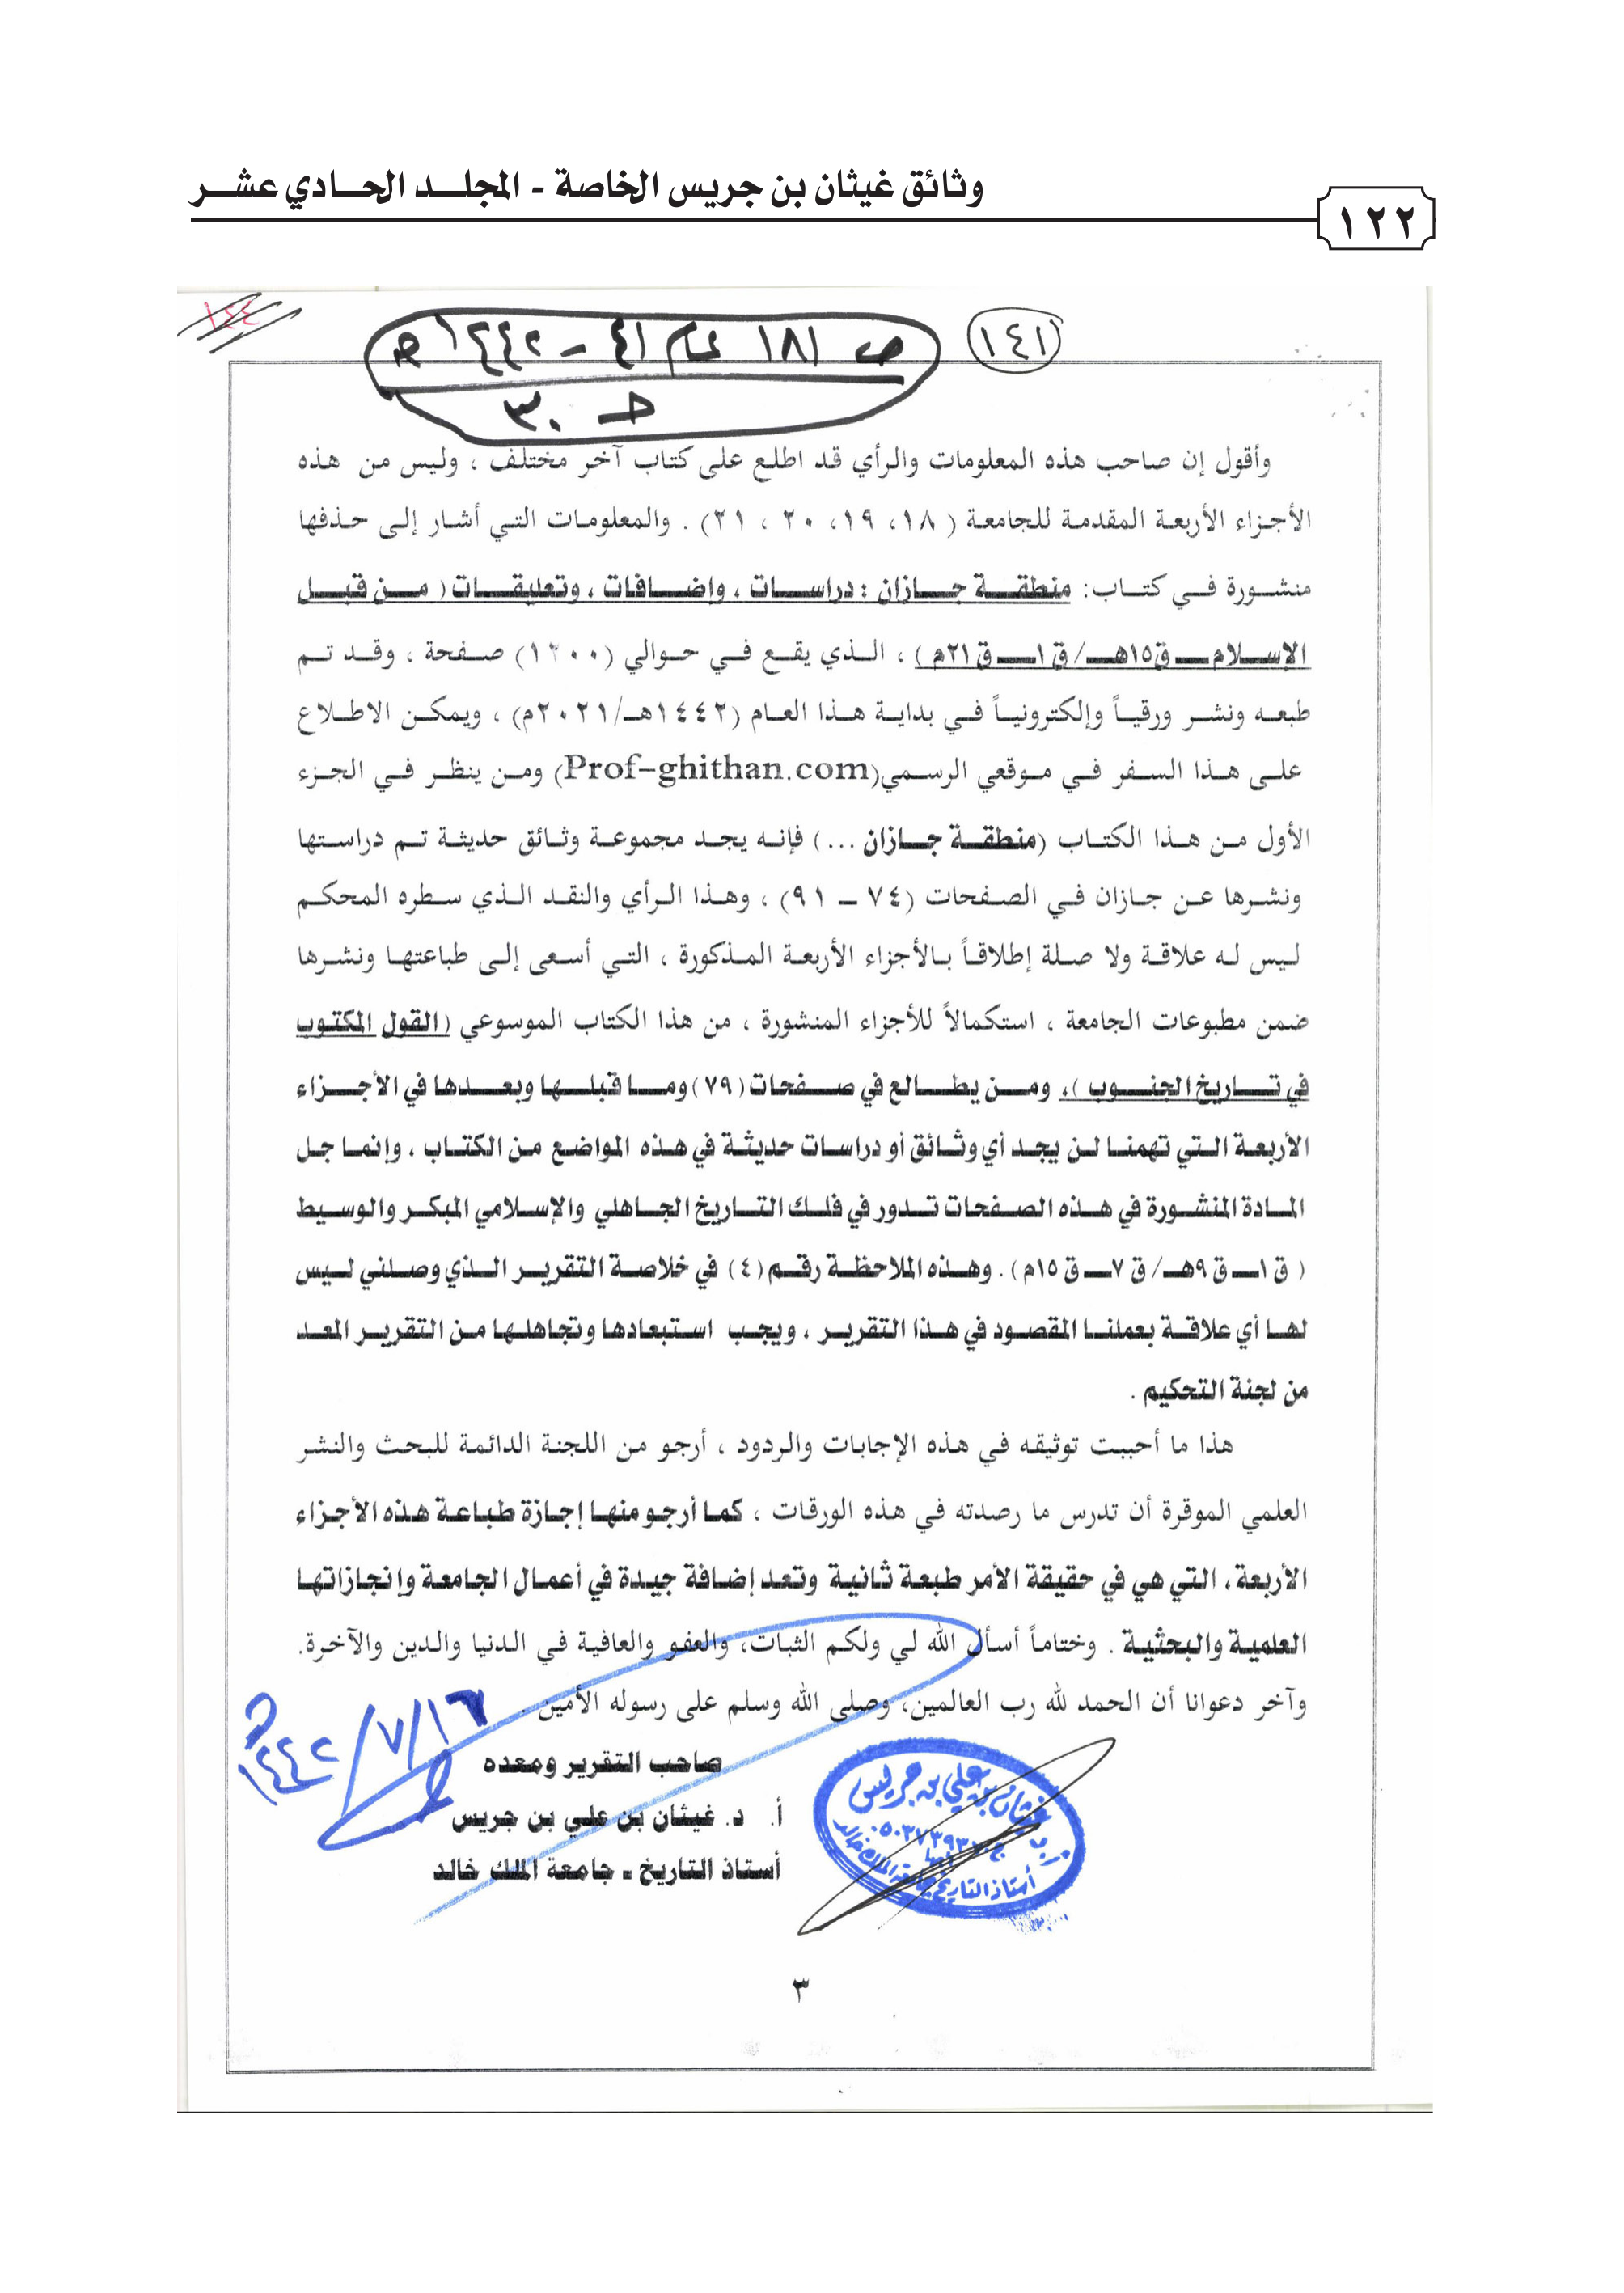 وثائق غيثان بن جريس الخاصة - المجلد الحادي عشر
١٢٢
١٤٤
١٤١
ص ١٨١ عام ٤١ - ١٤٤٢هـ
حـ ٣٠
وأقول إن صاحب هذه المعلومات والرأي قد اطلع على كتاب آخر مختلف ، وليس من هذه
الأجزاء الأربعة المقدمة للجامعة ( ١٨، ١٩، ٢٠ ، ٢١) . والمعلومات التي أشار إلى حذفها
منشورة في كتاب: منطقة جازان : دراسات ، وإضافات ، وتعليقات ( من قبل
الإسلام ـ ق١٥هـ/ ق١ـ ق٢١م ) ، الذي يقع في حوالي (١٢٠٠) صفحة ، وقد تم
طبعه ونشر ورقياً وإلكترونياً في بداية هذا العام (١٤٤٢هـ/٢٠٢١م) ، ويمكن الاطلاع
على هذا السفر في موقعي الرسمي(Prof-ghithan.com) ومن ينظر في الجزء
الأول من هذا الكتاب (منطقة جازان ...) فإنه يجد مجموعة وثائق حديثة تم دراستها
ونشرها عن جازان في الصفحات (٧٤ ـ ٩١) ، وهذا الرأي والنقد الذي سطره المحكم
ليس له علاقة ولا صلة إطلاقاً بالأجزاء الأربعة المذكورة ، التي أسعى إلى طباعتها ونشرها
ضمن مطبوعات الجامعة ، استكمالاً للأجزاء المنشورة ، من هذا الكتاب الموسوعي (القول المكتوب
في تاريخ الجنوب )، ومن يطالع في صفحات (٧٩) وما قبلها وبعدها في الأجزاء
الأربعة التي تهمنا لن يجد أي وثائق أو دراسات حديثة في هذه المواضع من الكتاب ، وإنما جل
المادة المنشورة في هذه الصفحات تدور في فلك التاريخ الجاهلي والإسلامي المبكر والوسيط
( ق١ـ ق٩هـ/ ق٧ـ ق١٥م) . وهذه الملاحظة رقم (٤) في خلاصة التقرير الذي وصلني ليس
لها أي علاقة بعملنا المقصود في هذا التقرير ، ويجب استبعادها وتجاهلها من التقرير المعد
من لجنة التحكيم .
هذا ما أحببت توثيقه في هذه الإجابات والردود ، أرجو من اللجنة الدائمة للبحث والنشر
العلمي الموقرة أن تدرس ما رصدته في هذه الورقات ، كما أرجو منها إجازة طباعة هذه الأجزاء
الأربعة ، التي هي في حقيقة الأمر طبعة ثانية وتعد إضافة جيدة في أعمال الجامعة وإنجازاتها
العلمية والبحثية . وختاماً أسأل الله لي ولكم الثبات، والعفو والعافية في الدنيا والدين والآخرة.
وآخر دعوانا أن الحمد لله رب العالمين، وصلى الله وسلم على رسوله الأمين .
١٦/٧/١٤٤٢هـ
صاحب التقرير ومعده
أ. د. غيثان بن علي بن جريس
أستاذ التاريخ ـ جامعة الملك خالد
غيثان بن علي بن جريس
أستاذ التاريخ بجامعة الملك خالد
٣